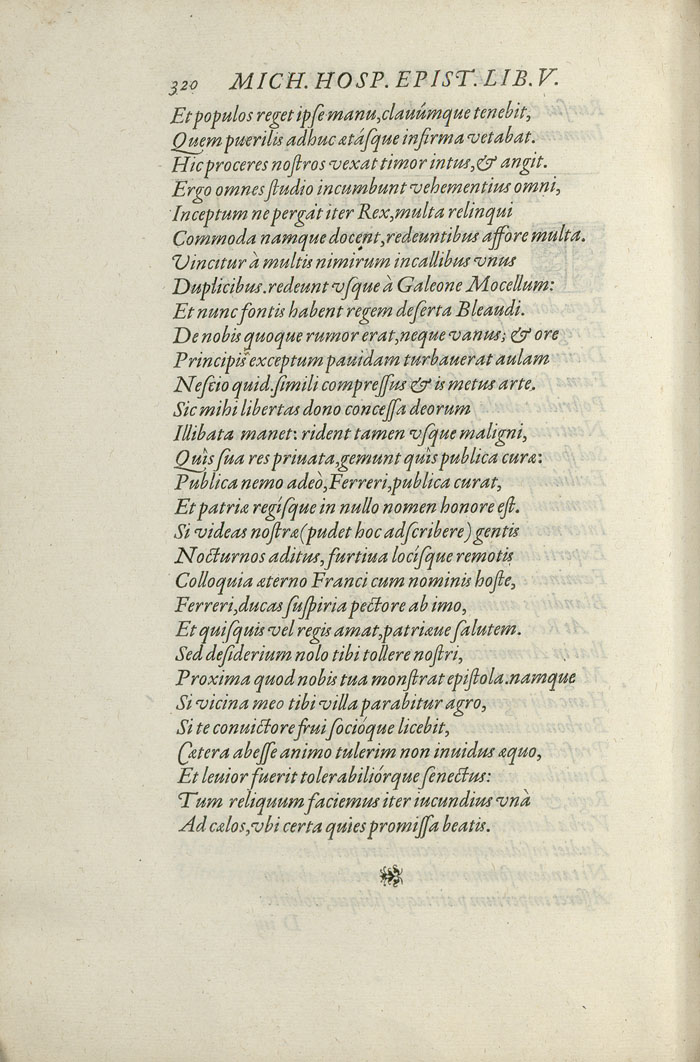 320 MICH. HOSP. EPIST. LIB. V.
Et populos reget ipſe manu, clauúmque tenebit,
Quem puerilis adhuc ætáſque infirma vetabat.
Hic proceres noſtros vexat timor intus, & angit.
Ergo omnes ſtudio incumbunt vehementius omni,
Inceptum ne pergat iter Rex, multa relinqui
Commoda namque docent, redeuntibus affore multa.
Vincitur à multis nimirum incallibus vnus
Duplicibus. redeunt vſque à Galeone Mocellum:
Et nunc fontis habent regem deſerta Bleaudi.
De nobis quoque rumor erat, neque vanus; & ore
Principis exceptum pauidam turbauerat aulam
Neſcio quid. ſimili compreſſus & is metus arte.
Sic mihi libertas dono conceſſa deorum
Illibata manet: rident tamen vſque maligni,
Quìs ſua res priuata, gemunt quìs publica curæ:
Publica nemo adeò, Ferreri, publica curat,
Et patriæ regíſque in nullo nomen honore eſt.
Si videas noſtræ (pudet hoc adſcribere) gentis
Nocturnos aditus, furtiua locíſque remotis
Colloquia æterno Franci cum nominis hoſte,
Ferreri, ducas ſuſpiria pectore ab imo,
Et quiſquis vel regis amat, patriæue ſalutem.
Sed deſiderium nolo tibi tollere noſtri,
Proxima quod nobis tua monſtrat epiſtola. namque
Si vicina meo tibi villa parabitur agro,
Si te conuictore frui ſocióque licebit,
Cætera abeſſe animo tulerim non inuidus æquo,
Et leuior fuerit tolerabiliórque ſenectus:
Tum reliquum faciemus iter iucundius vnà
Ad cælos, vbi certa quies promiſſa beatis.